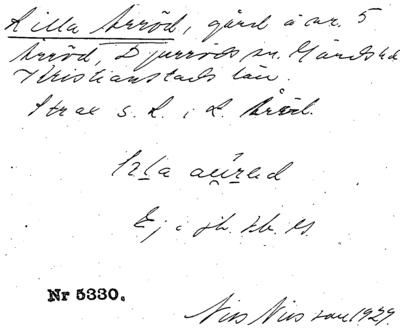 Lilla Årröd, gård å nr. 5
Årröd, Djurröds sn. Gärds hd
Kristianstads län.
Strax s. L. i L. Årröd.
Ej i jb.
Nr 5330.
Nils Nilsson 1929.